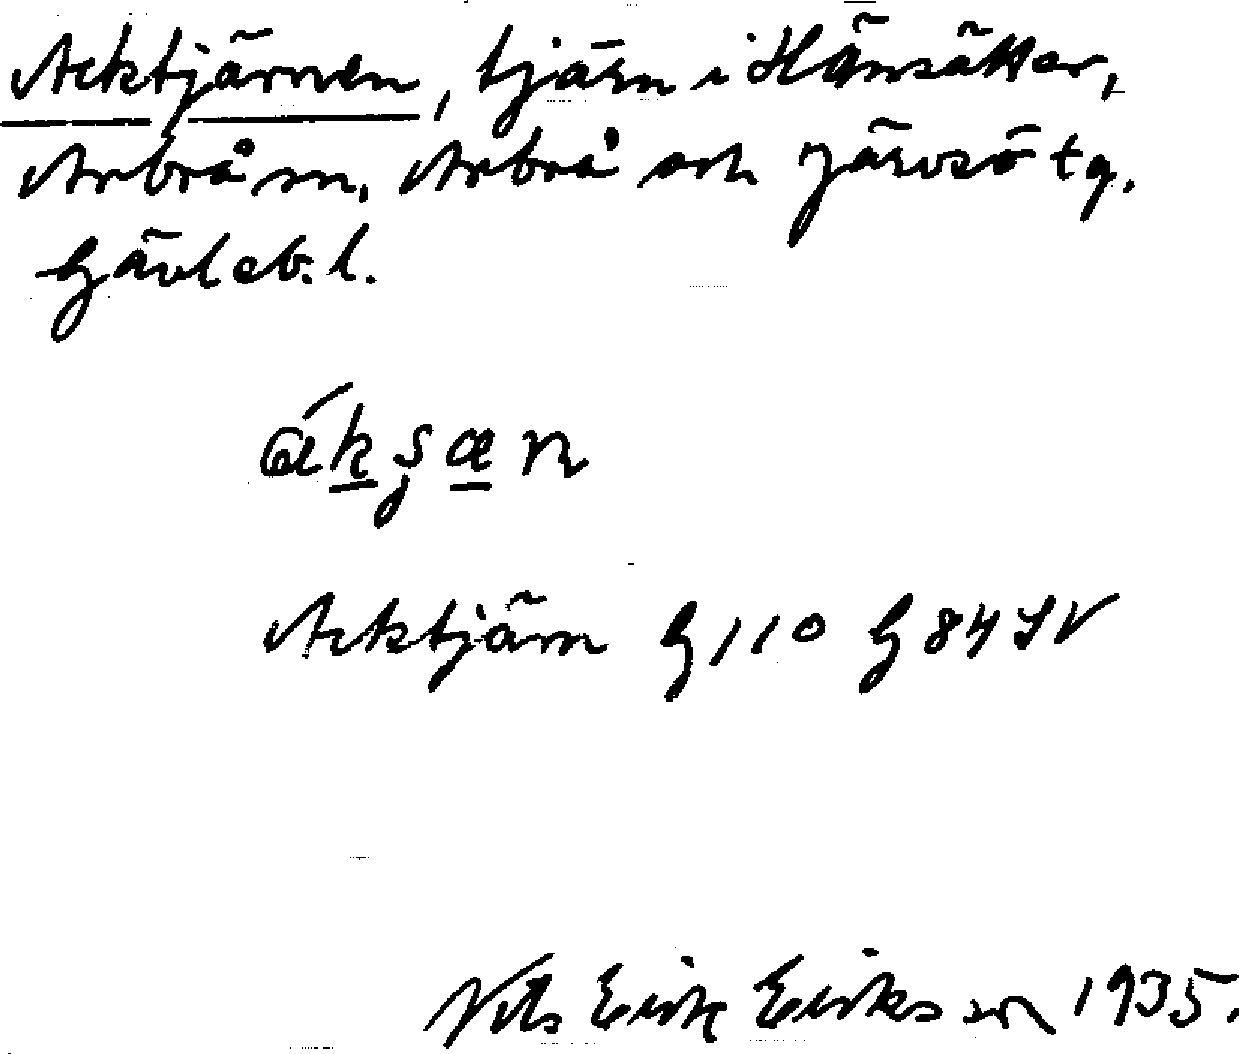 Acktjärnen, tjärn i Hänsätter,
Arbrå sn, Arbrå och Järvsö tg.
Gävleb. l.
Acktjärn G 110 G 84 SV
Nils Eirik Eiriksson 1935.